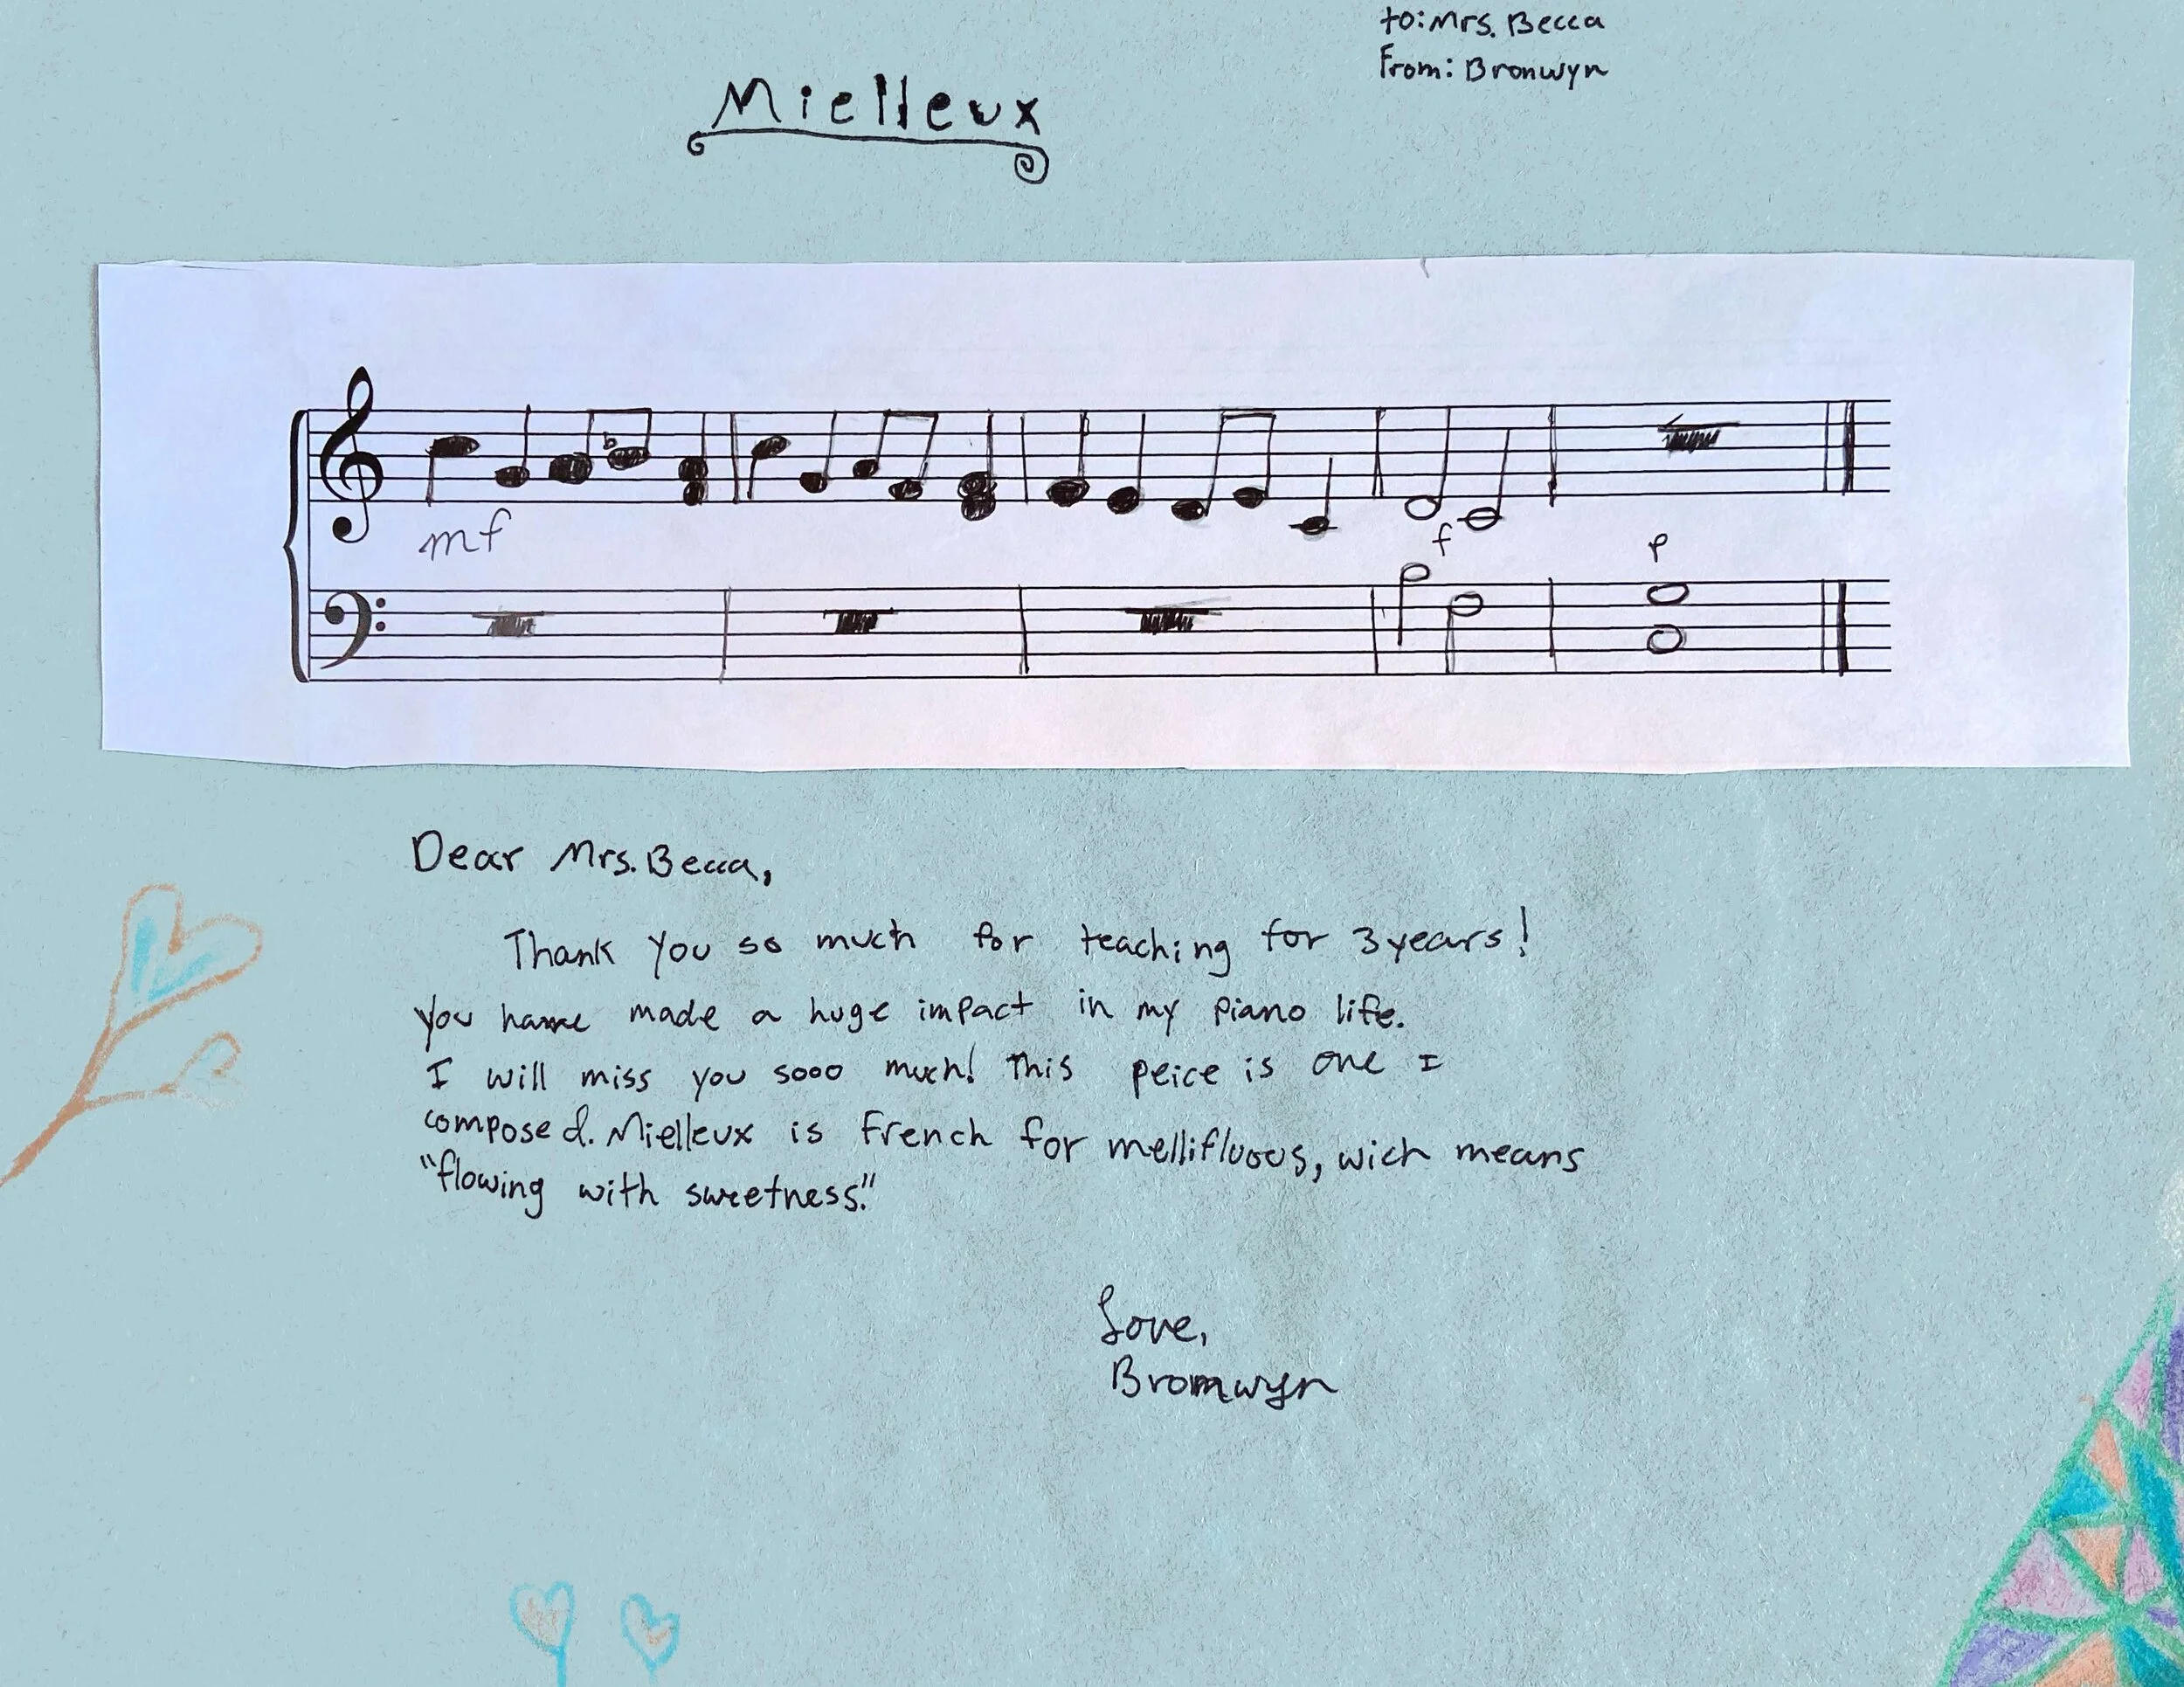 to: Mrs. Becca
From: Bronwyn
Mielleux
mf
f
p
Dear Mrs. Becca,
Thank you so much for teaching for 3 years!
You have made a huge impact in my piano life.
I will miss you sooo much! This peice is one I
composed. Mielleux is French for mellifluous, wich means
"flowing with sweetness."
Love,
Bronwyn